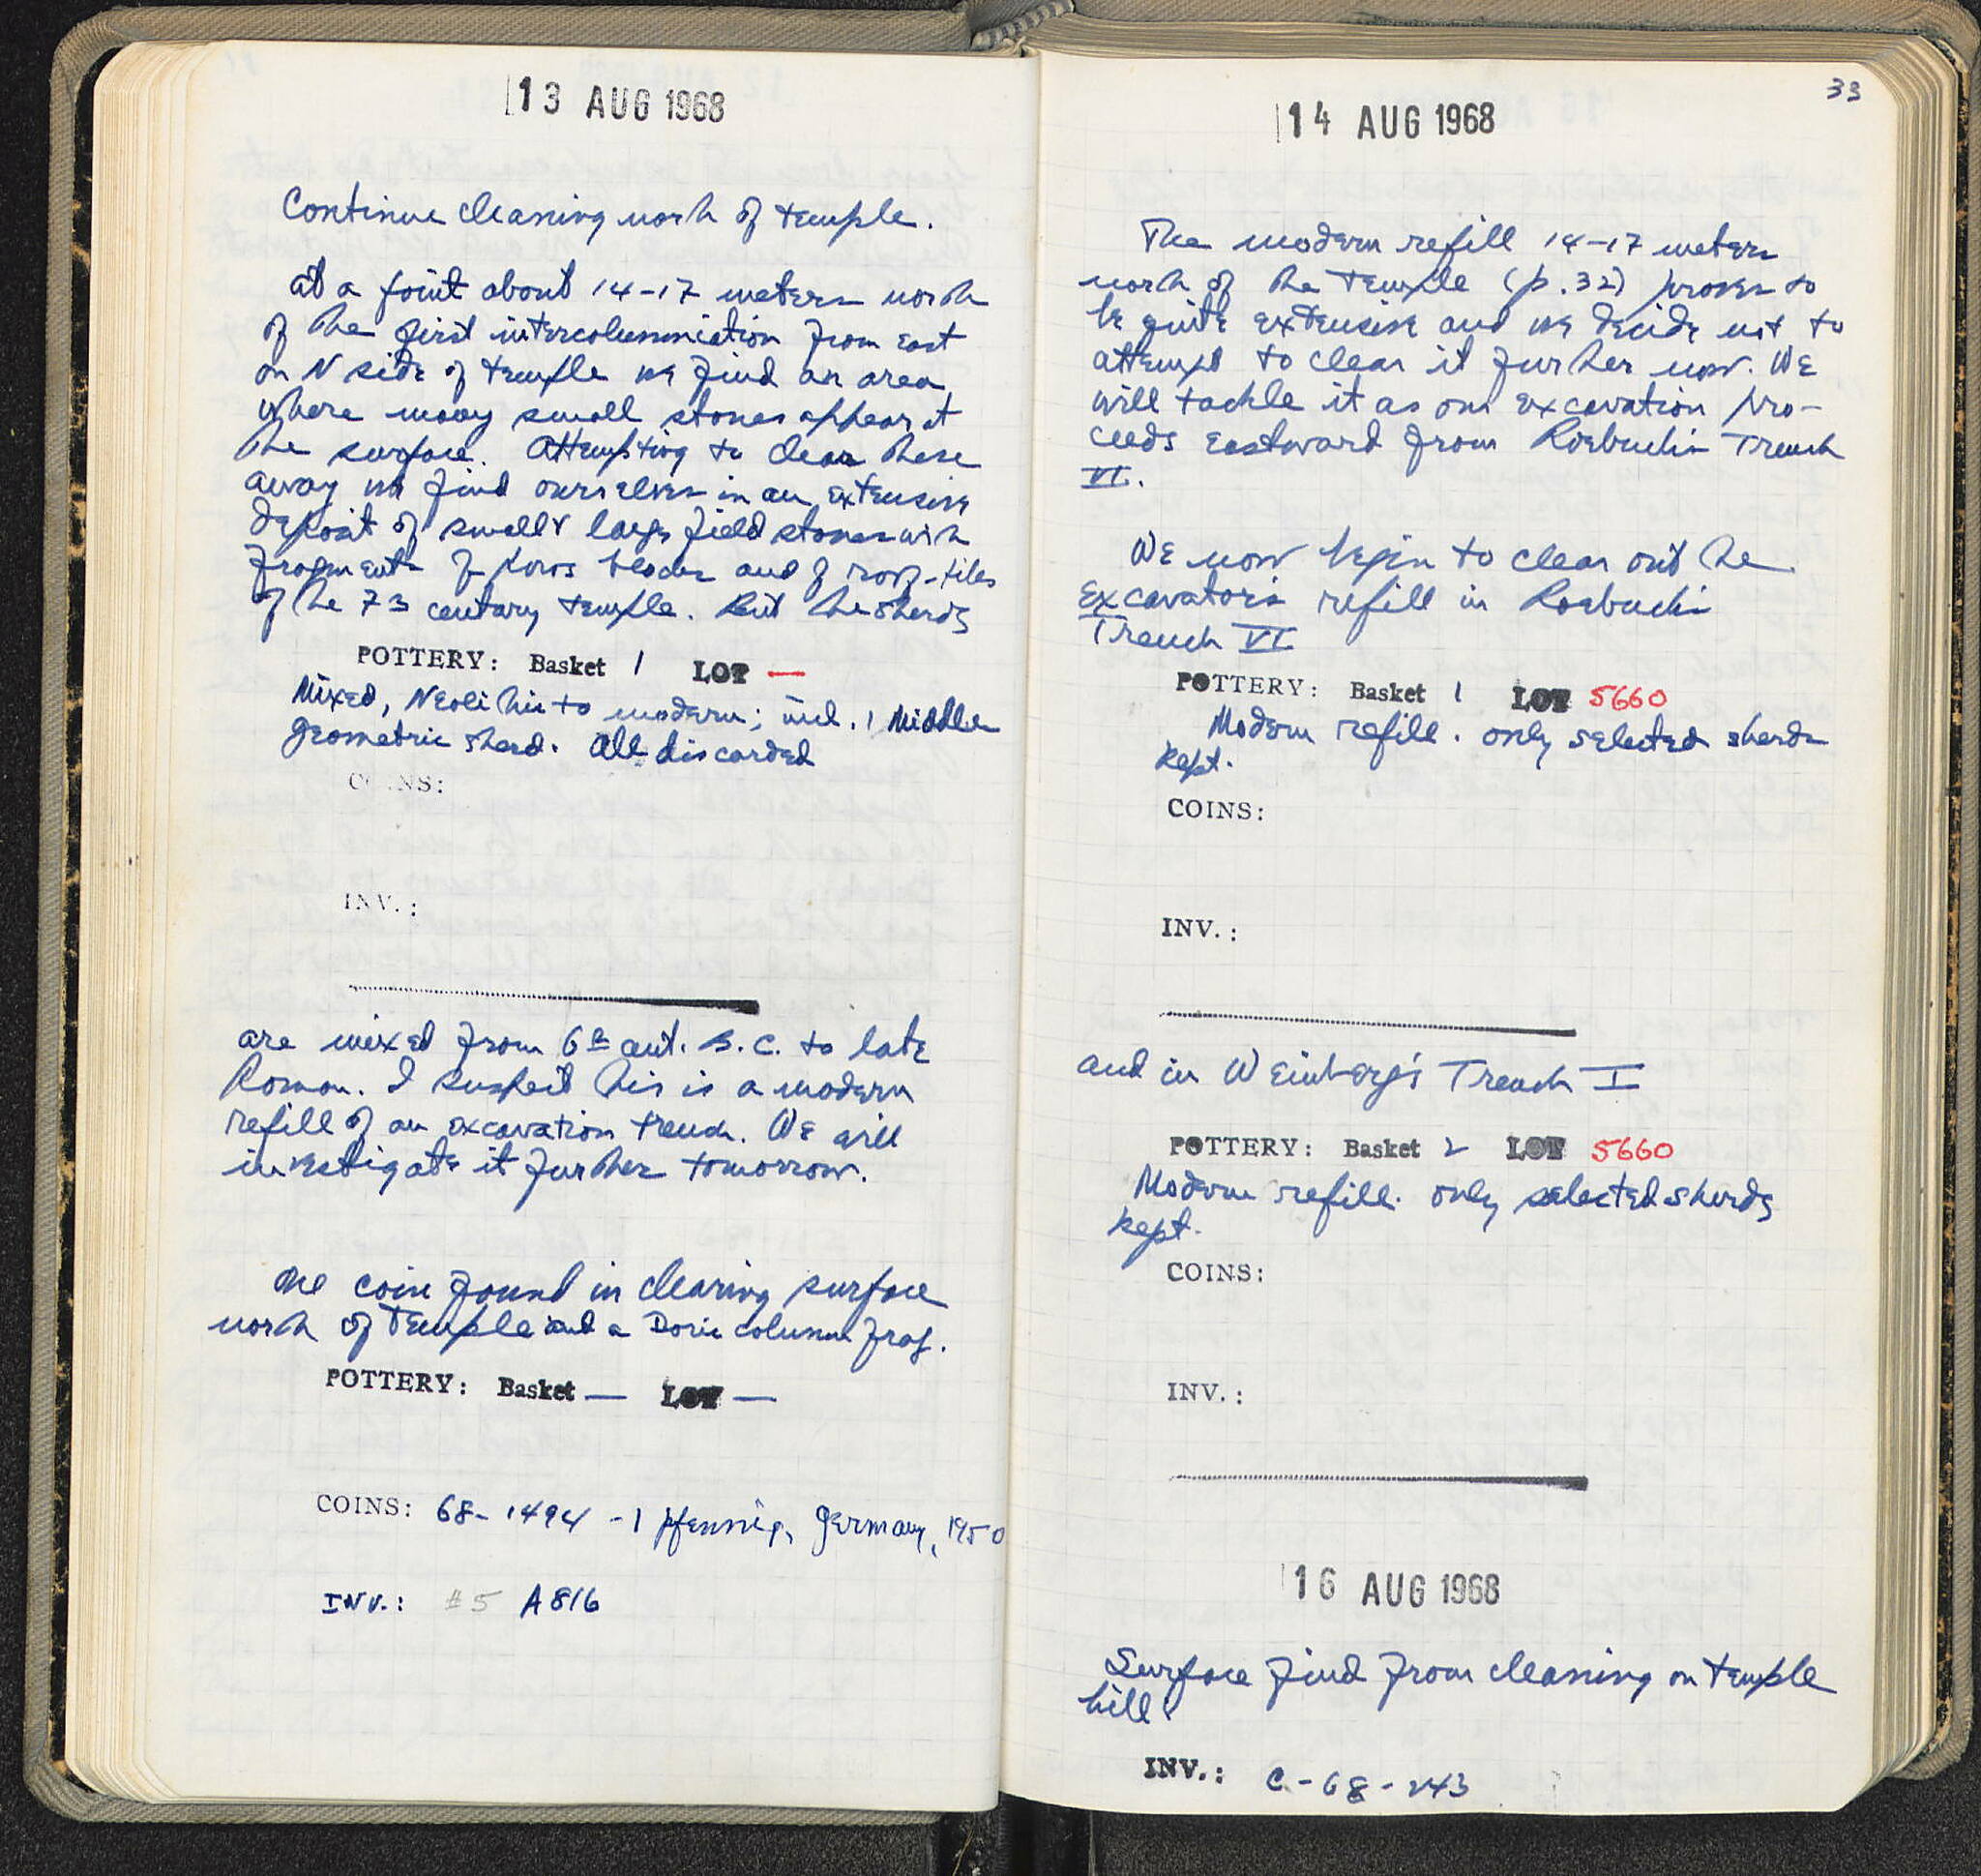 13 AUG 1968
Continue cleaning north of temple.
At a point about 14-17 meters north
of the first intercolumniation from east
on N side of temple we find an area
where many small stones appear at
the surface. Attempting to clear these
away we find ourselves in an extensive
deposit of small & large field stones with
fragments of poros blocks and of roof-tiles
of the 7th century temple. But the sherds
POTTERY: Basket 1 LOT —
Mixed, Neolithic to modern; incl. 1 Middle
Geometric sherd. All discarded
COINS:
INV.:
are mixed from 6th cent. B.C. to late
Roman. I suspect this is a modern
refill of an excavation trench. We will
investigate it further tomorrow.
One coin found in clearing surface
north of temple and a Doric column frag.
POTTERY: Basket — LOT —
COINS: 68-1494 - 1 pfennig, Germany, 1950
INV.: #5 A816
33
14 AUG 1968
The modern refill 14-17 meters
north of the temple (p. 32) proves to
be quite extensive and we decide not to
attempt to clear it further now. We
will tackle it as our excavation pro-
ceeds eastward from Roebuck's Trench
VI.
We now begin to clear out the
excavator's refill in Roebuck's
Trench VI
POTTERY: Basket 1 LOT 5660
Modern refill. only selected sherds
kept.
COINS:
INV.:
and in Weinberg's Trench I
POTTERY: Basket 2 LOT 5660
Modern refill. only selected sherds
kept.
COINS:
INV.:
16 AUG 1968
Surface find from cleaning on temple
hill.
INV.: C-68-243